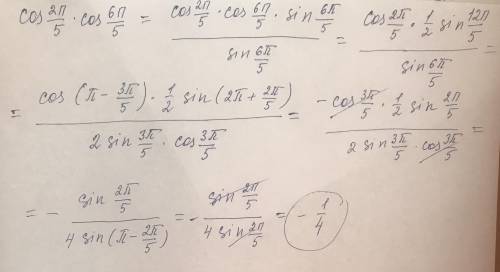 cos 2π/5 · cos 6π/5 = (cos 2π/5 · cos 6π/5 · sin 6π/5) / (sin 6π/5) = (cos 2π/5 · 1/2 sin 12π/5) / (sin 6π/5) =
= (cos (π - 3π/5) · 1/2 sin (2π + 2π/5)) / (2 sin 3π/5 · cos 3π/5) = (-cos 3π/5 · 1/2 sin 2π/5) / (2 sin 3π/5 · cos 3π/5) =
= - (sin 2π/5) / (4 sin (π - 2π/5)) = - (sin 2π/5) / (4 sin 2π/5) = - 1/4